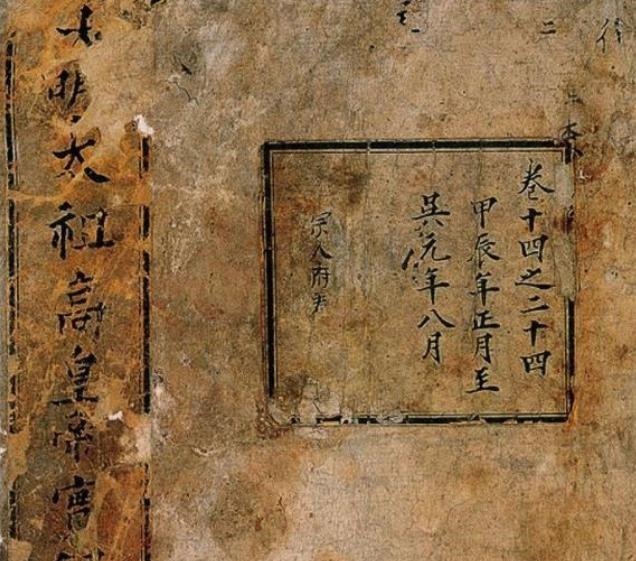 卷十四之二十四
甲辰年正月至
吳元年八月
宗人府
大明太祖高皇帝實